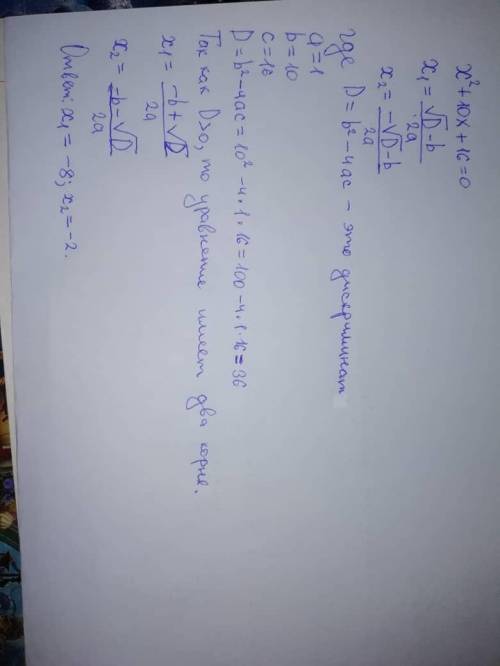 x²+10x+16=0
x₁=(√D-b)/2a
x₂=(-√D-b)/2a
где D=b²-4ac - это дискриминат
a=1
b=10
c=16
D=b²-4ac=10²-4·1·16=100-4·1·16=36
Так как D>0, то уравнение имеет два корня.
x₁=(-b+√D)/2a
x₂=(-b-√D)/2a
Ответ: x₁=-8; x₂=-2.